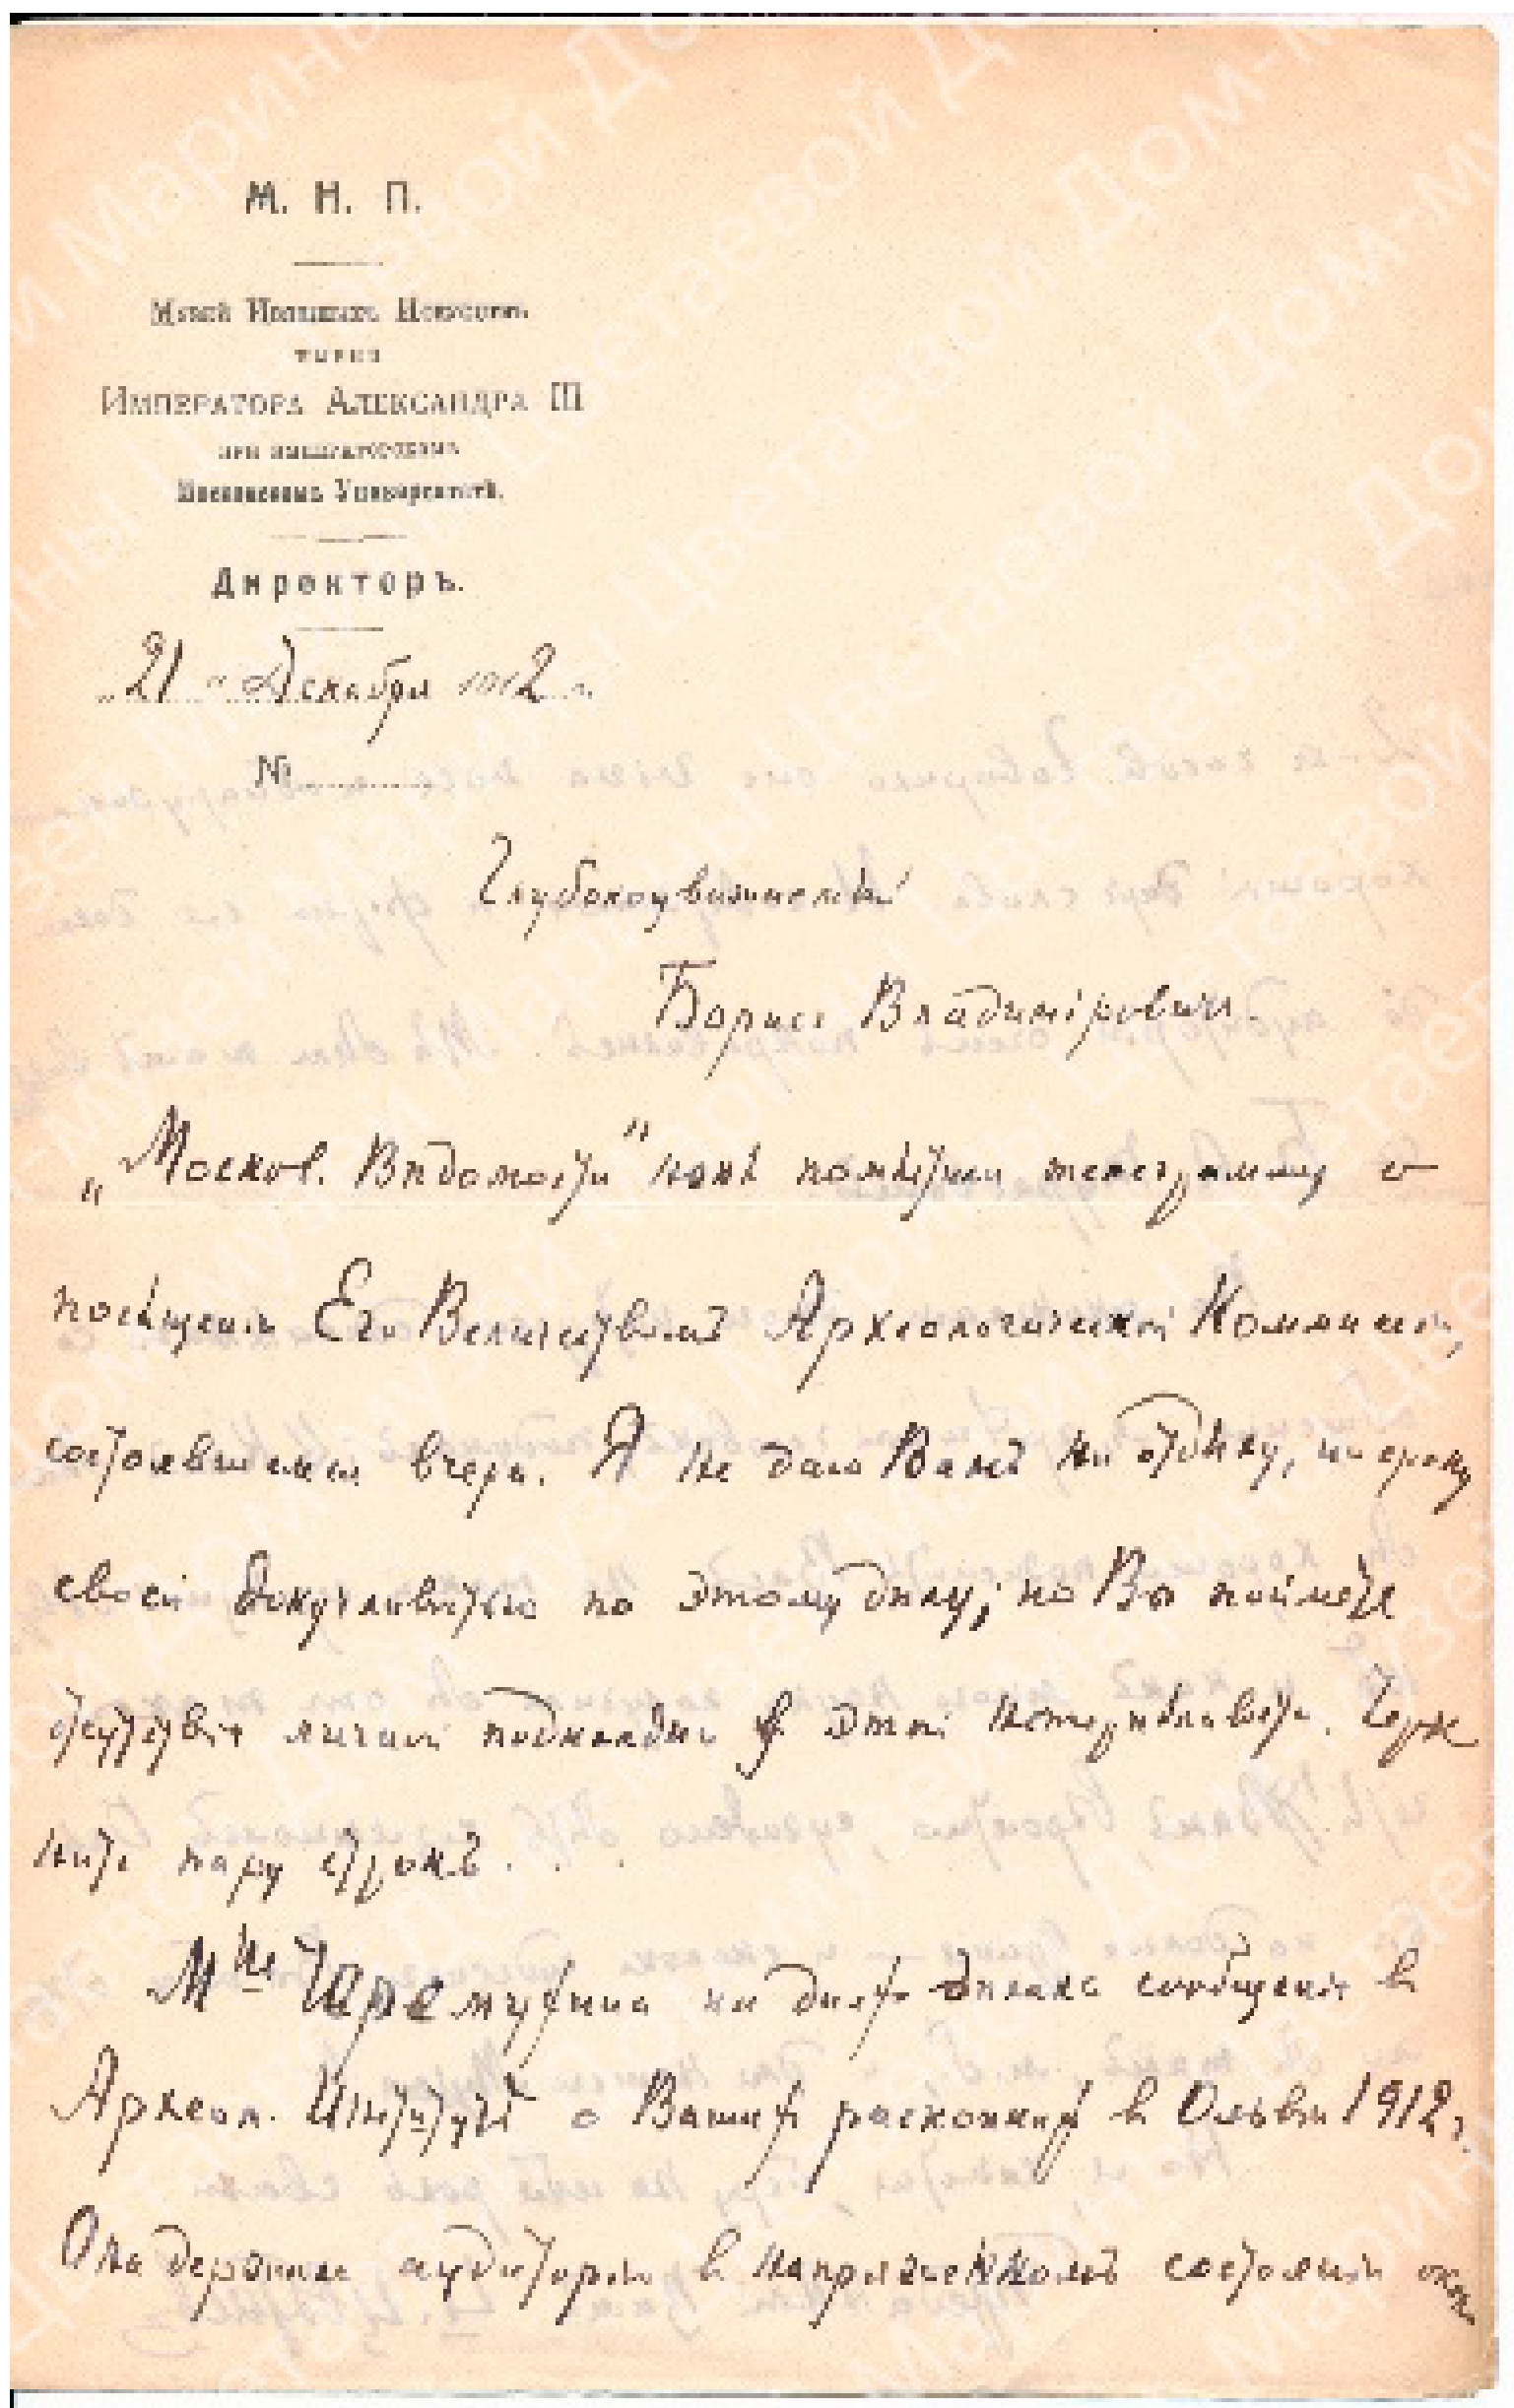 М. Н. П.
Музей Изящныхъ Искусствъ
имени
Императора Александра III
при Императорскомъ
Московскомъ Университетѣ.
Директоръ.
„21“ Декабря 1912 г.
№
Глубокоуважаемый
Борисъ Владиміровичъ
„Москов. Вѣдомости" помѣстили телеграмму о
посѣщеніи Его Величествомъ Археологической Коммиссіи,
состоявшемся вчера. Я не даю Вамъ ни отдыху, ни сроку
своей докучливостью по этому дѣлу; но Вы поймете
отсутствіе личной подкладки в этой нетерпѣливости. Черк
ните пару строкъ . . .
Mlle на дняхъ дѣлала сообщеніе в
Археол. Институтѣ о Вашихъ раскопкахъ в Ольвіи 1912 г.
Она держала аудиторію в напряженномъ состояніи около